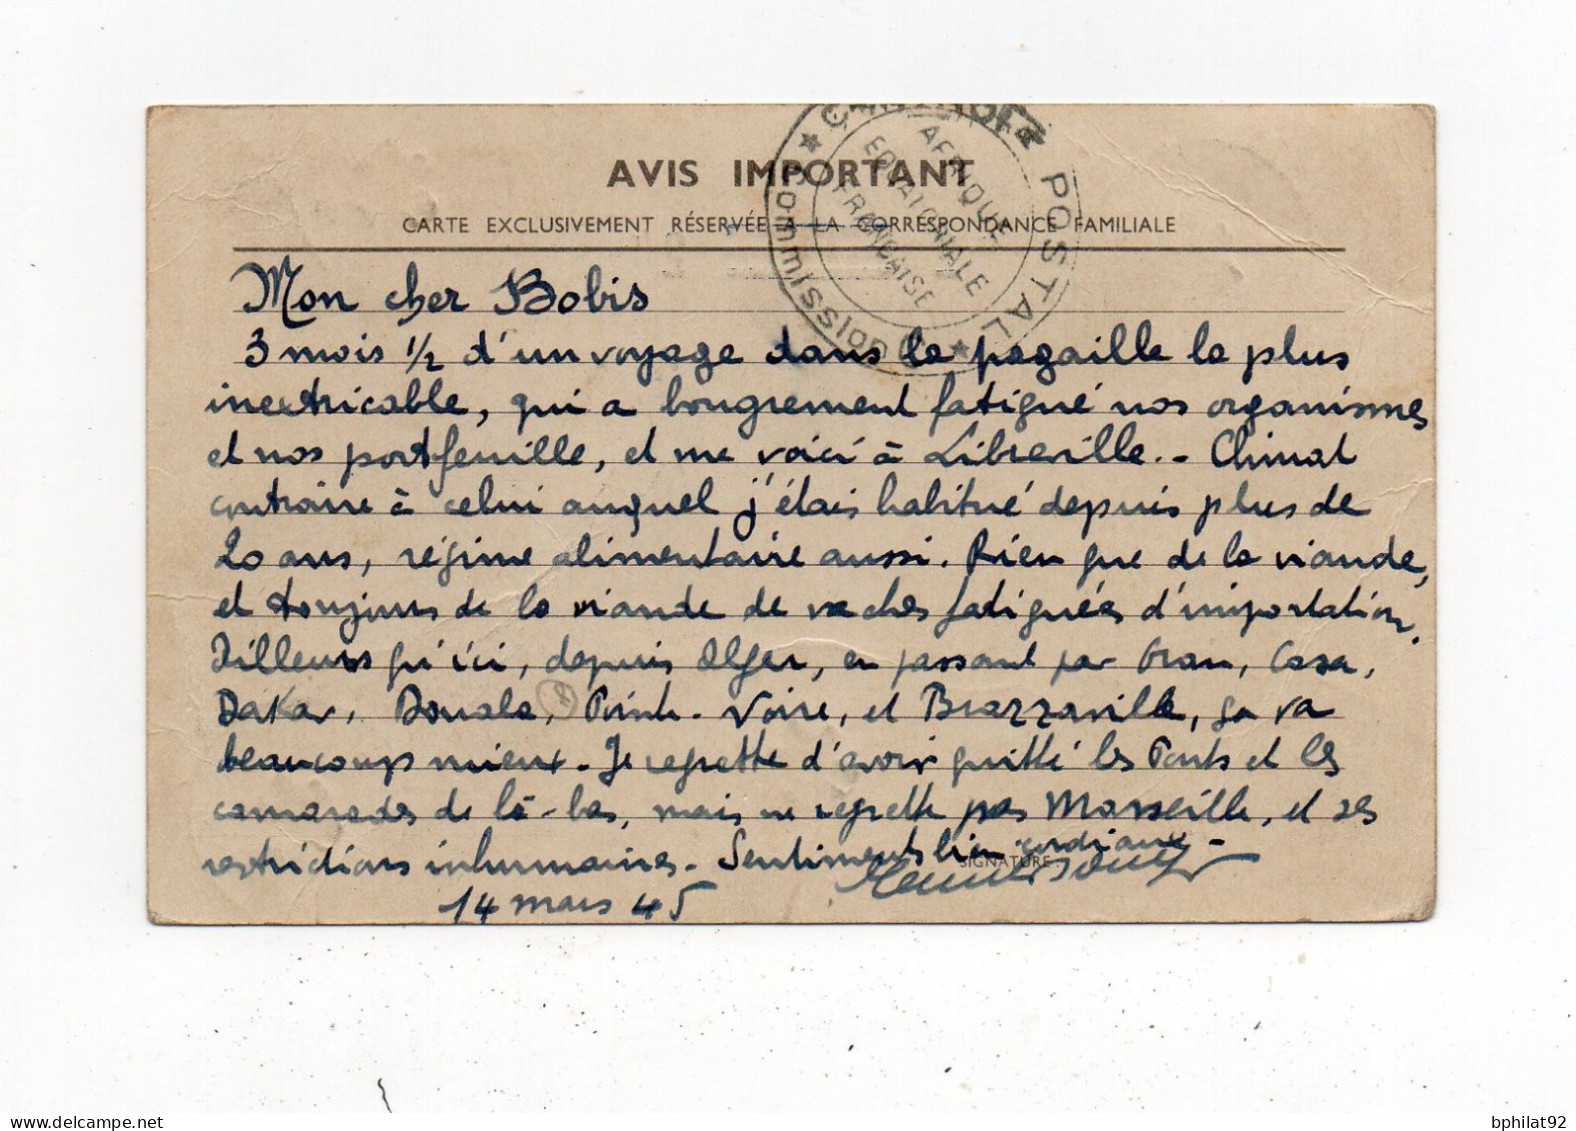 AVIS IMPORTANT
CARTE EXCLUSIVEMENT RÉSERVÉE A LA CORRESPONDANCE FAMILIALE
CONTROLE POSTAL
Commission
AFRIQUE
EQUATORIALE
FRANCAISE
Mon cher Bobis
3 mois 1/2 d'un voyage dans la pagaille la plus
inextricable, qui a bougrement fatigué nos organismes
et nos portefeuille, et me voici à Libreville. - Climat
contraire à celui auquel j'étais habitué depuis plus de
20 ans, régime alimentaire aussi. Rien que de la viande,
et toujours de la viande de vaches fatiguées d'importation.
Dilleurs qu'ici, depuis Alger, en passant par Oran, Casa,
Dakar, Douala, Pointe-Noire, et Brazzaville, ça va
beaucoup mieux. Je regrette d'avoir quitté les Ponts et les
camarades de là-bas, mais ne regrette pas Marseille, et ses
restrictions inhumaines. Sentiments bien cordiaux -
SIGNATURE
14 mars 45
delcampe.net
bphilat92